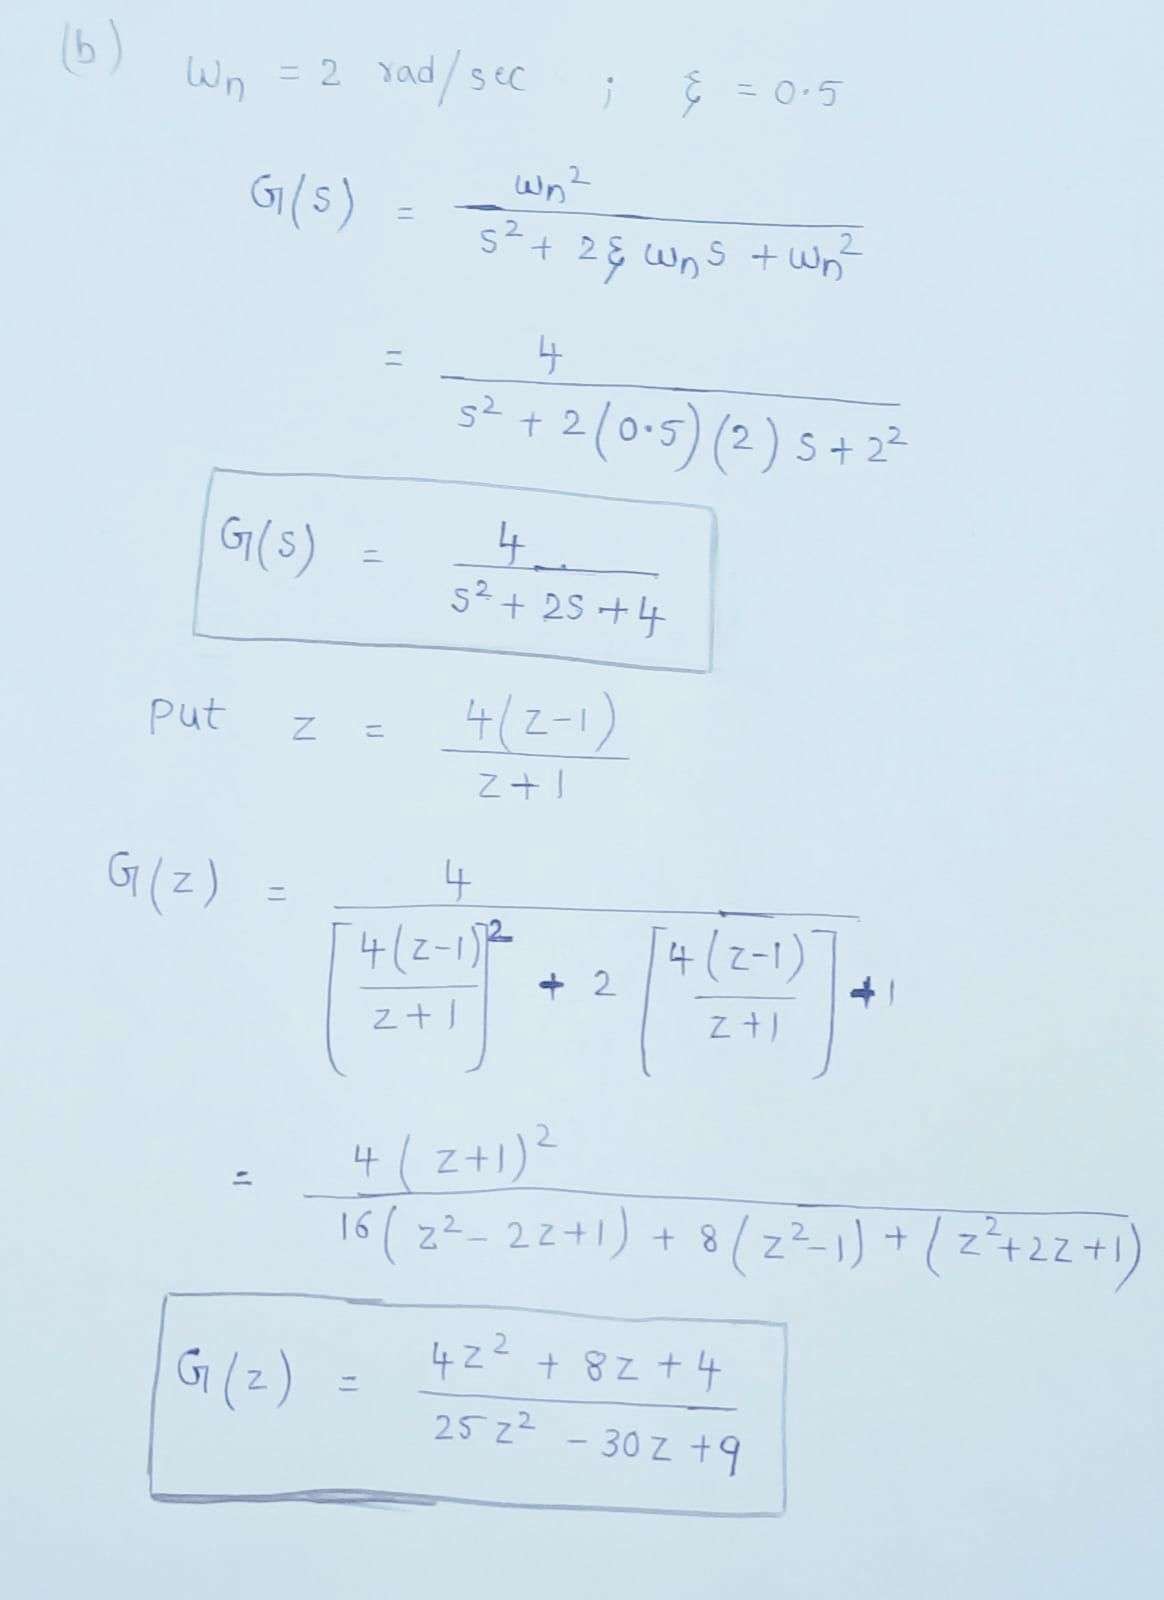 (b) ωn = 2 rad/sec ; ξ = 0.5
G(s) = ωn² / s² + 2ξ ωn s + ωn²
= 4 / s² + 2(0.5)(2) s + 2²
G(s) = 4 / s² + 2s + 4
put z = 4(z-1) / z+1
G(z) = 4 / [4(z-1) / z+1]² + 2 [4(z-1) / z+1] + 1
= 4(z+1)² / 16(z² - 2z+1) + 8(z²-1) + (z²+2z+1)
G(z) = 4z² + 8z + 4 / 25z² - 30z + 9